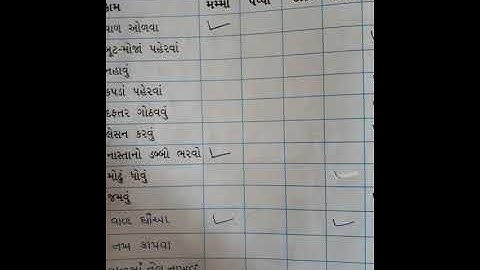 કામ મમ્મી પપ્પા
વાળ ઓળવા
બૂટ-મોજાં પહેરવાં
નહાવું
કપડાં પહેરવાં
દફતર ગોઠવવું
લેસન કરવું
નાસ્તાનો ડબ્બો ભરવો
મોઢું ધોવું
જમવું
વાળ ધોવા
નખ કાપવા